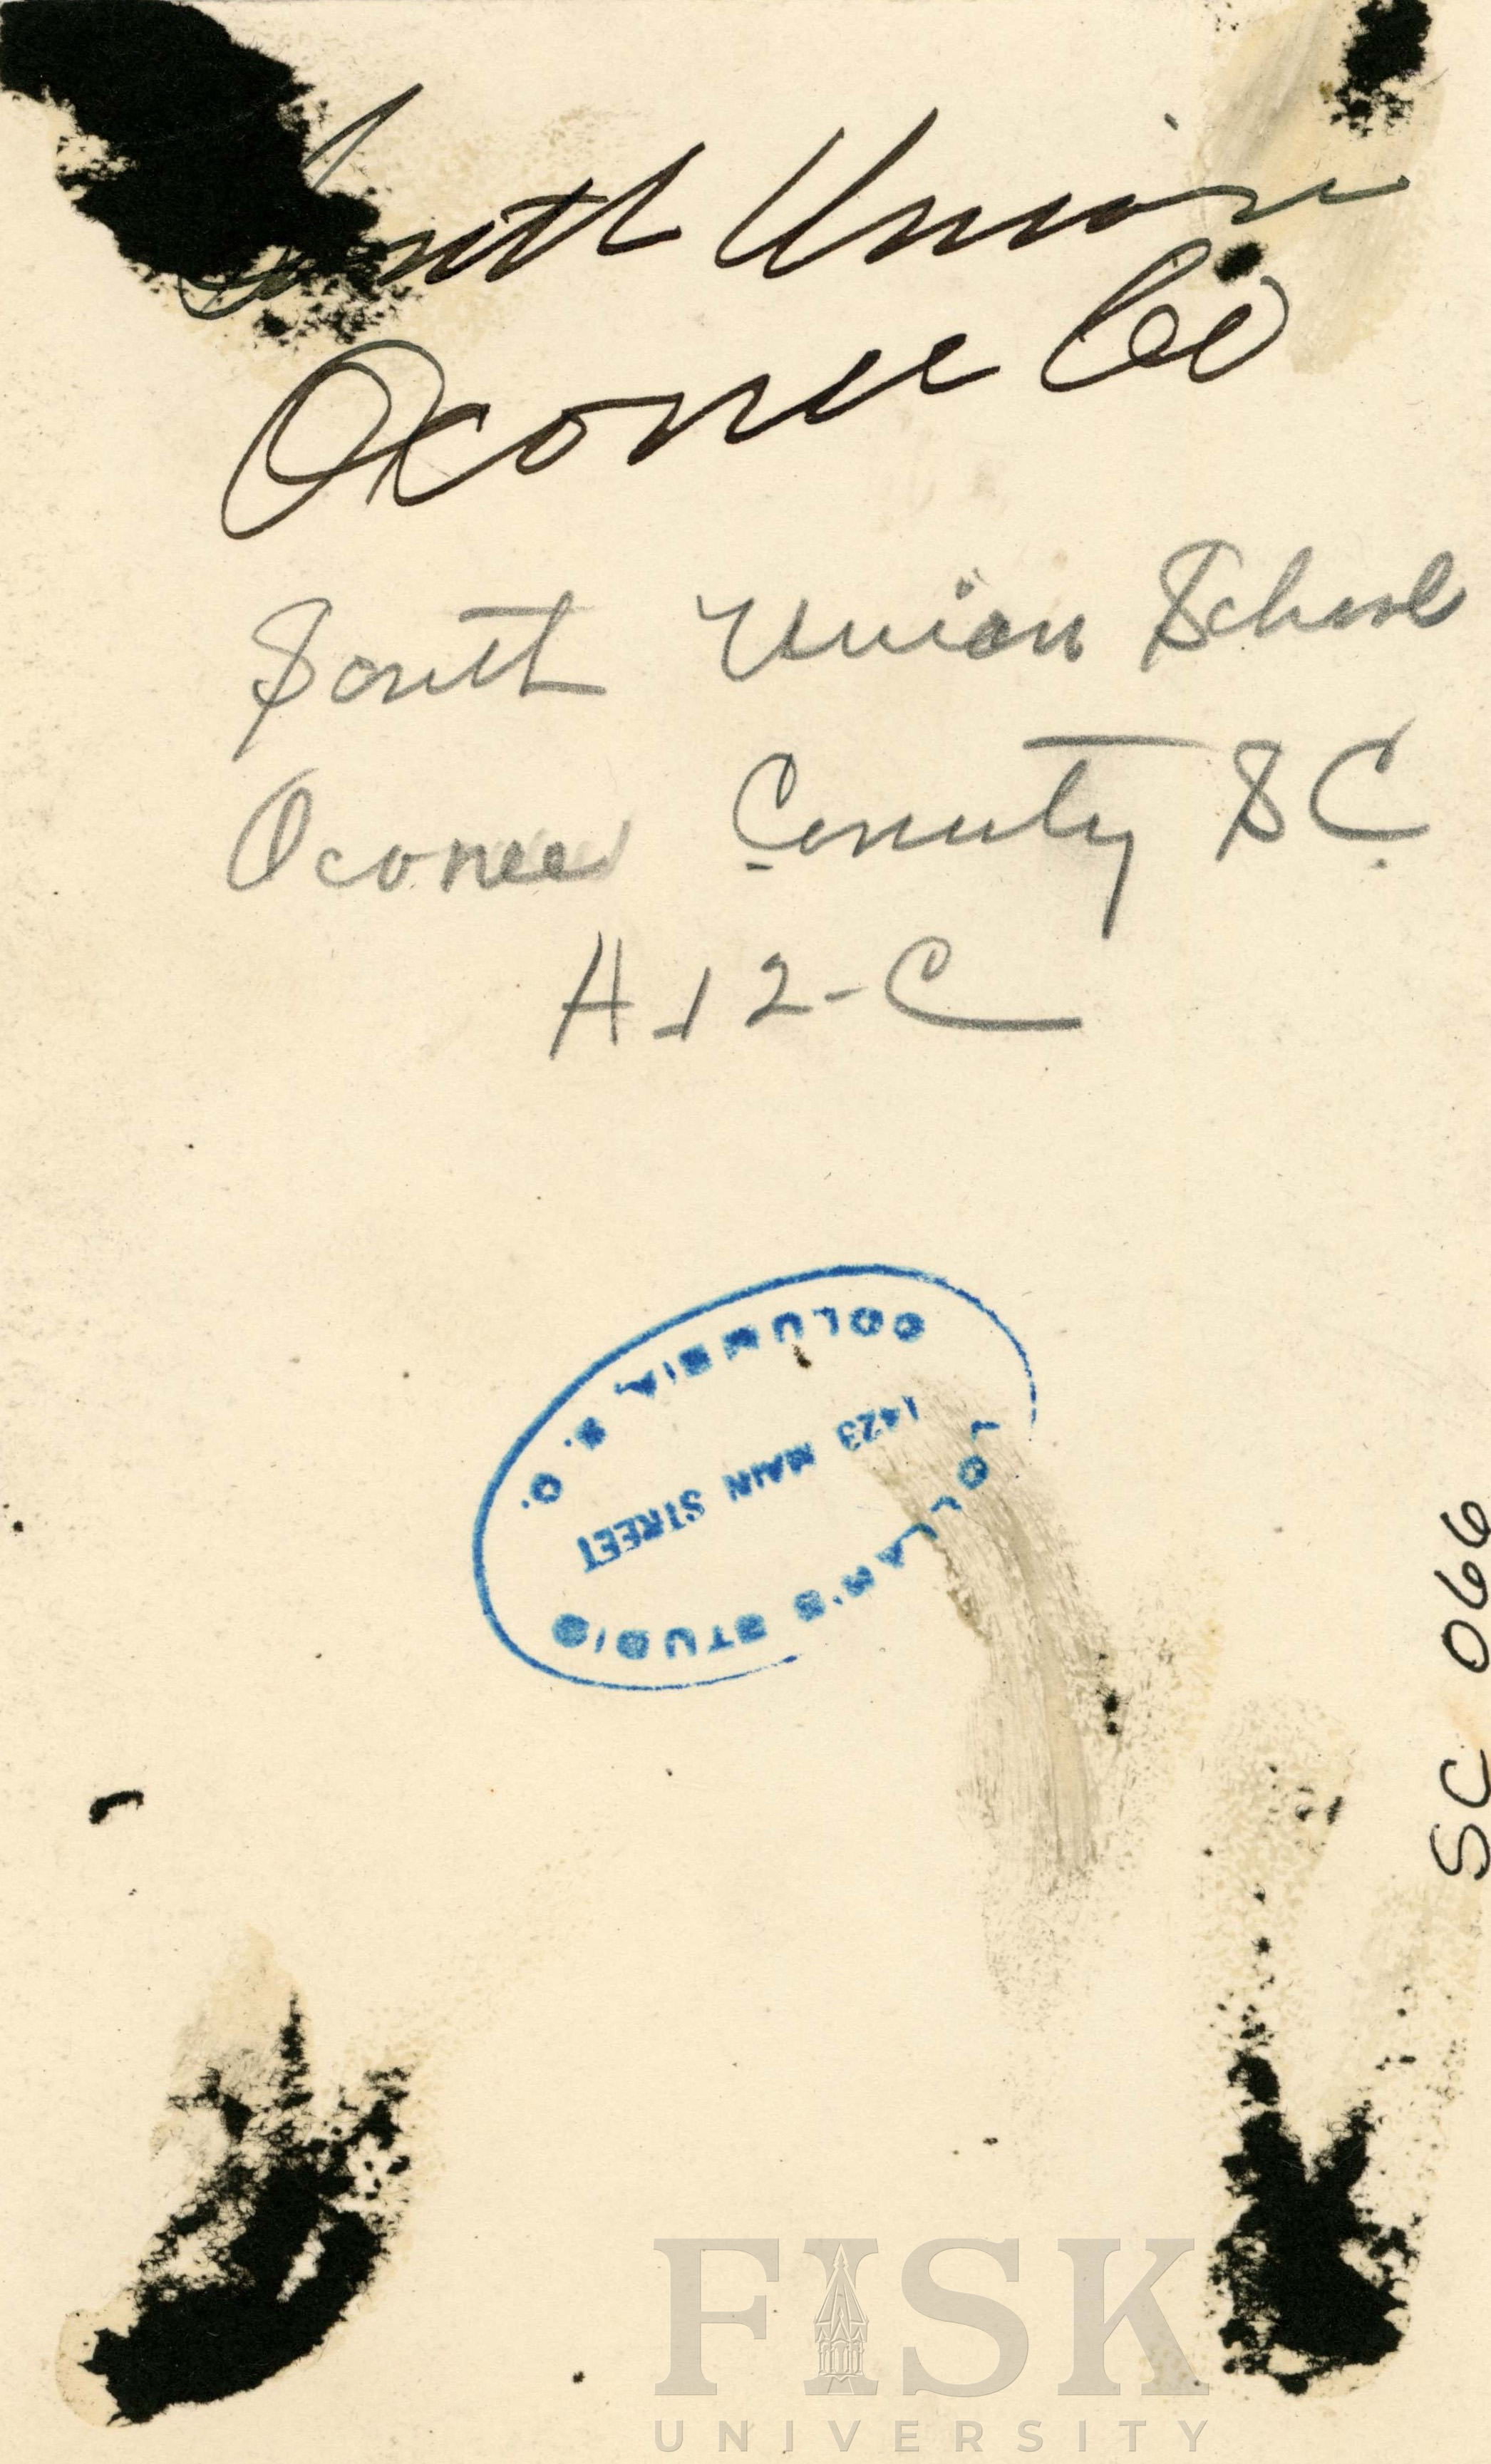 South Union
Oconee Co
South Union School
Oconee County SC
A-12-C
COLUMBIA, S. C.
1423 MAIN STREET
STUDIO
SC 066
FISK
UNIVERSITY